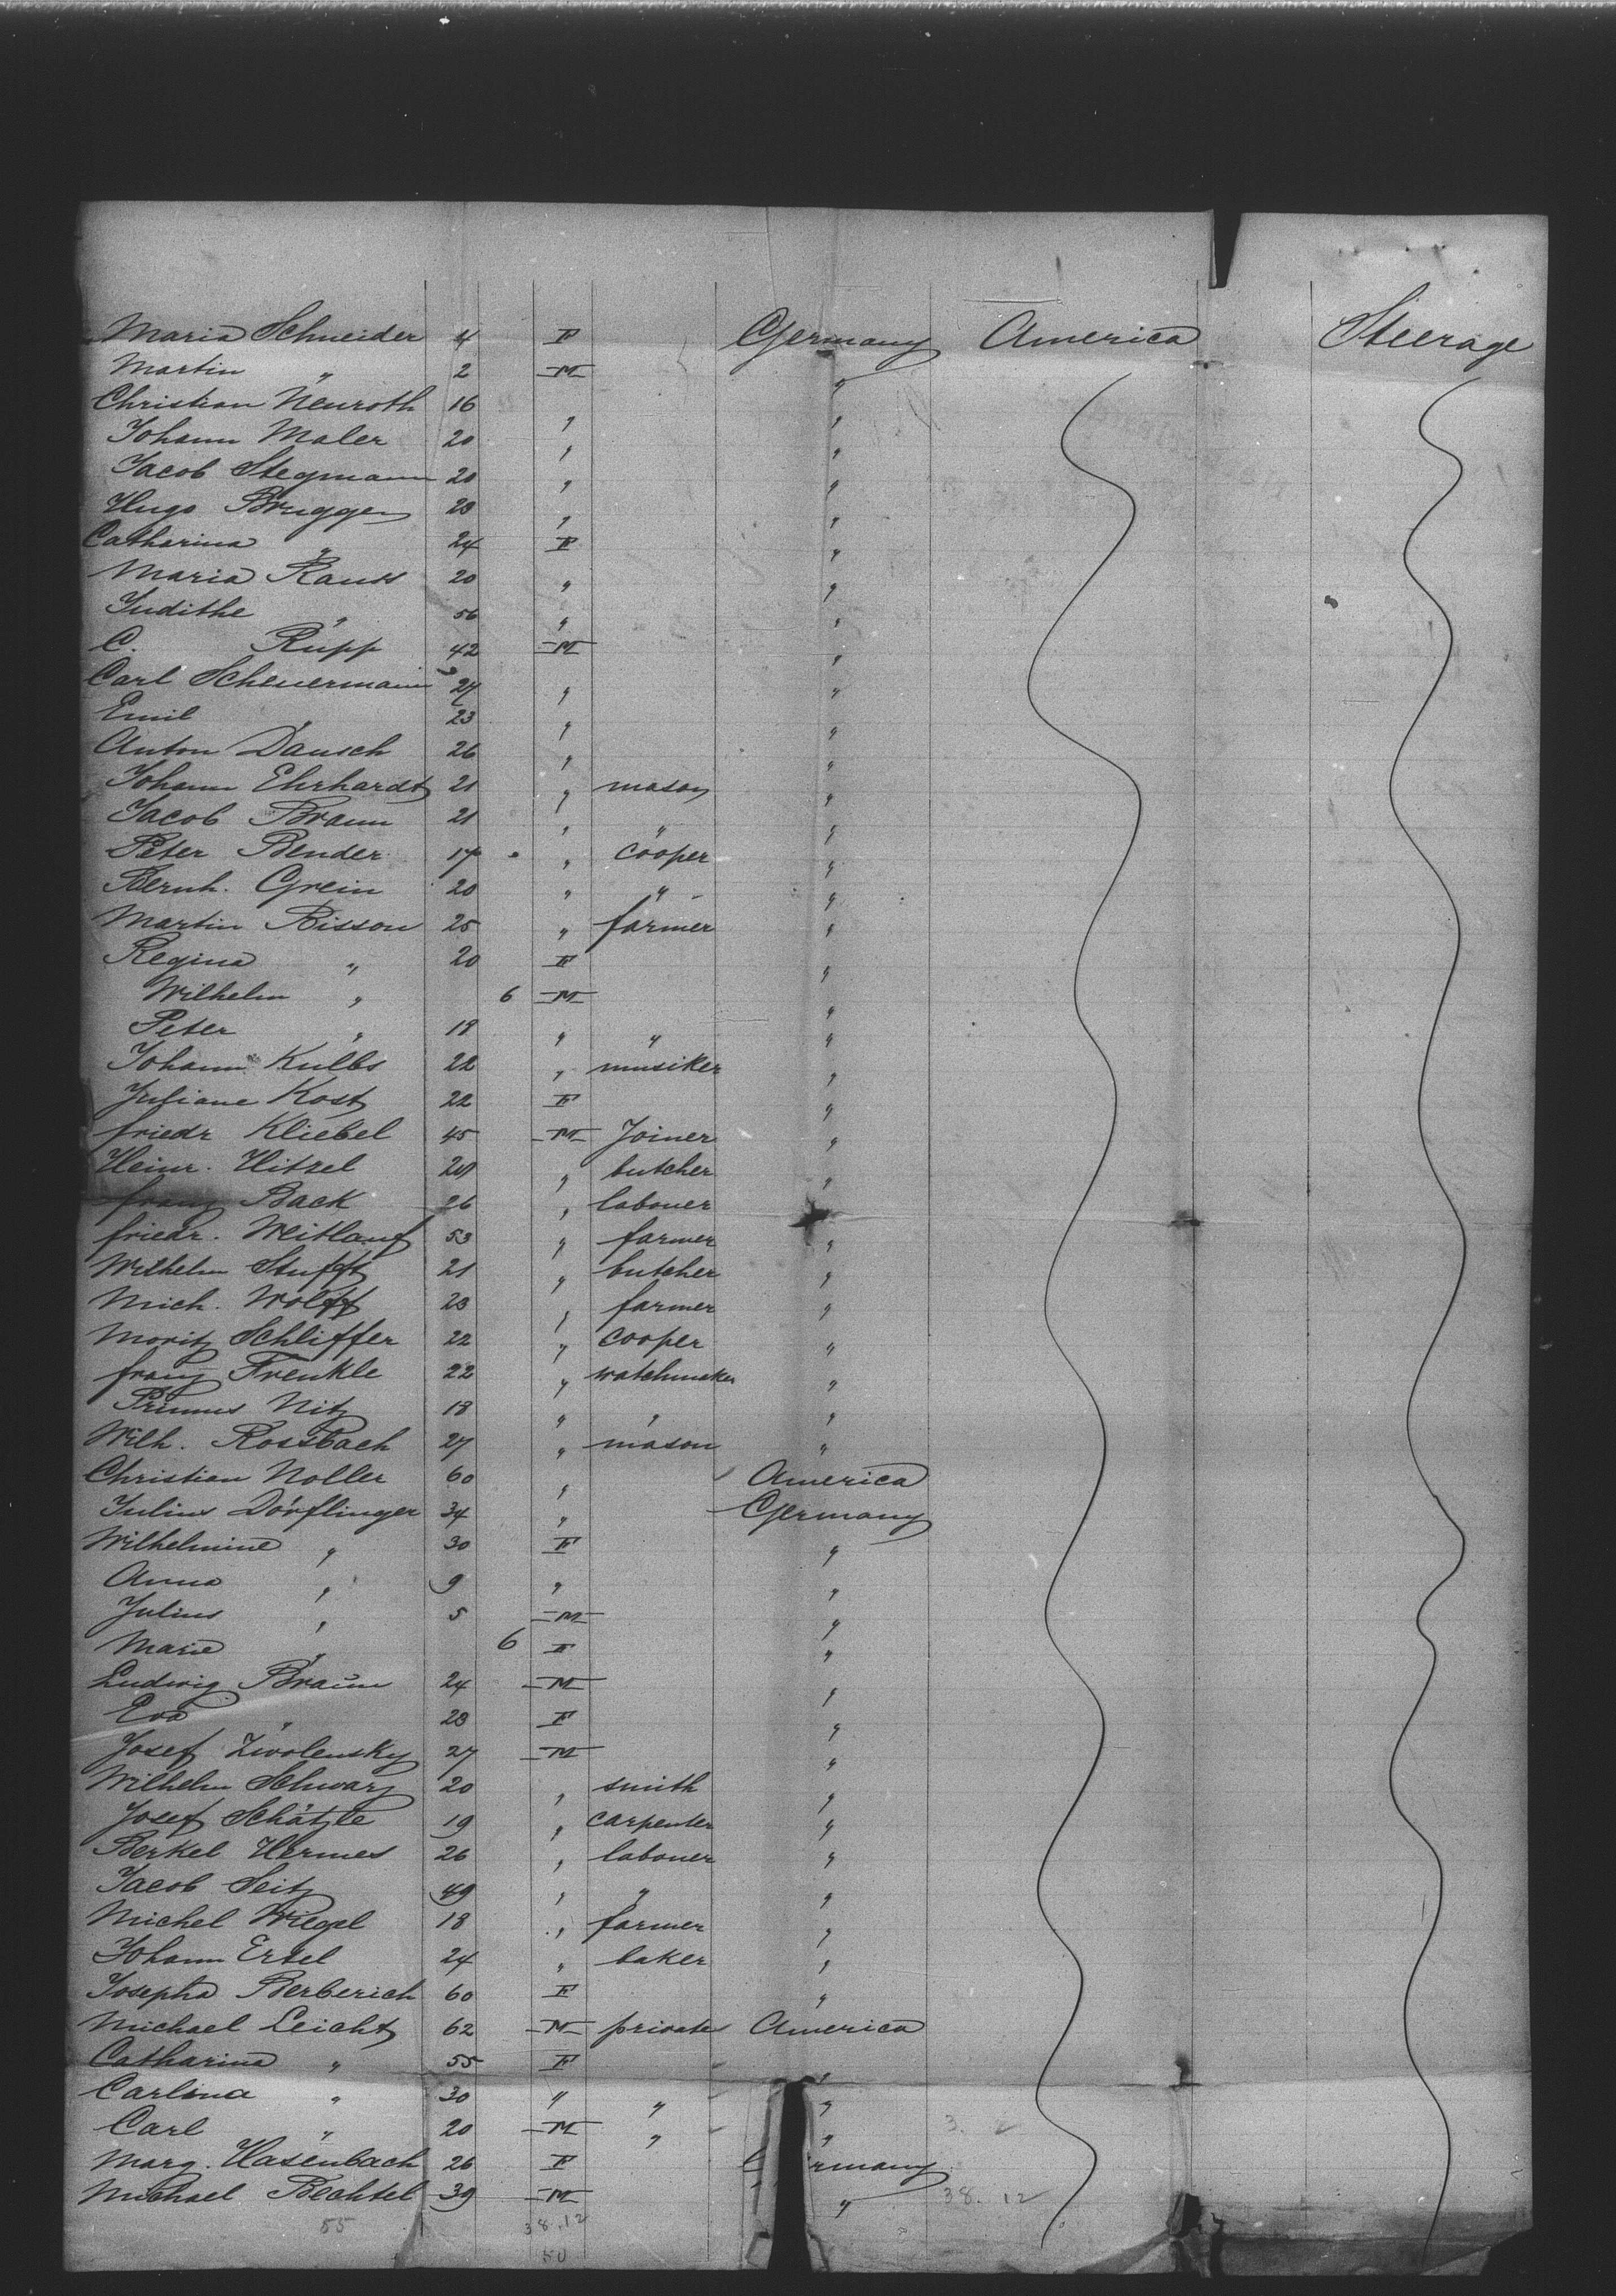 Maria Schneider 4 F Germany America Steerage
Martin " 2 M "
Christian Neuroth 16 " "
Johann Maler 20 " "
Jacob Stegmann 20 " "
Hugo Bruggen 23 " "
Catharina " 24 F "
Maria Rauss 20 " "
Judithe " 56 " "
C. Rupp 42 M "
Carl Scheuermann 27 " "
Emil " 23 " "
Anton Dausch 26 " "
Johann Ehrhardt 21 " mason "
Jacob Braun 21 " " "
Peter Bender 17 " cooper "
Bernh. Grein 20 " " "
Martin Bisson 25 " farmer "
Regina " 20 F "
Wilhelm " 6 M "
Peter " 18 " " "
Johann Kulbs 22 " musiker "
Juliane Kost 22 F "
friedr Kliebel 45 M Joiner "
Heinr. Hitzel " butcher "
franz Back 26 " labouer
friedr. Weitlauf 53 " farmer "
Wilhelm Stufft 21 " butcher "
Mich. Wolff 23 " farmer "
Moritz Schliffer 22 " cooper "
franz Frenkle 22 " watchmaker "
Primus Nitz 18 " " "
Wilh. Rossbach 27 " mason "
Christian Noller 60 " America
Julius Dörflinger 34 " Germany
Wilhelmine " 30 F "
Anna " 9 " "
Julius " 5 M "
Marie " 6 F "
Ludwig Braun 24 M "
Eva " 23 F "
Josef Zivolensky 27 M "
Wilhelm Schwarz 20 " smith "
Josef Schätzle 19 " carpenter "
Berkel Hermes 26 " labouer "
Jacob Seitz 49 " " "
Michel Wiegel 18 " farmer "
Johann Ertel 24 " baker "
Josepha Berberich 60 F "
Michael Leicht 62 M private America
Catharina " 55 F "
Carlina " 30 " " "
Carl " 20 M " "
Marg. Hasenbach 26 F Germany
Michael Bechtel 39 M " 38. 12
55 38.12
50